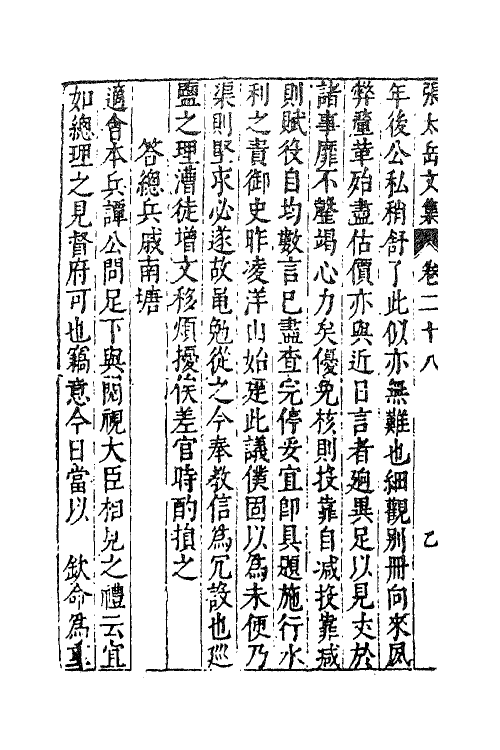 張太岳文集 卷二十八 乙
年後公私稍舒了此似亦無難也細觀别冊向來夙
弊釐革殆盡估價亦與近日言者逈異足以見丈於
諸事靡不罄竭心力矣優免核則投靠自减投靠减
則賦役自均數言已盡查完停妥宜即具題施行水
利之責御史昨凌洋山始建此議僕固以為未便乃
渠則堅求必遂故黽勉從之今奉教信為冗設也廵
鹽之理漕徒增文移煩擾俟差官時酌損之
答總兵戚南塘
適會本兵譚公問足下與閱視大臣相見之禮云宜
如總理之見督府可也竊意今日當以 欽命為重